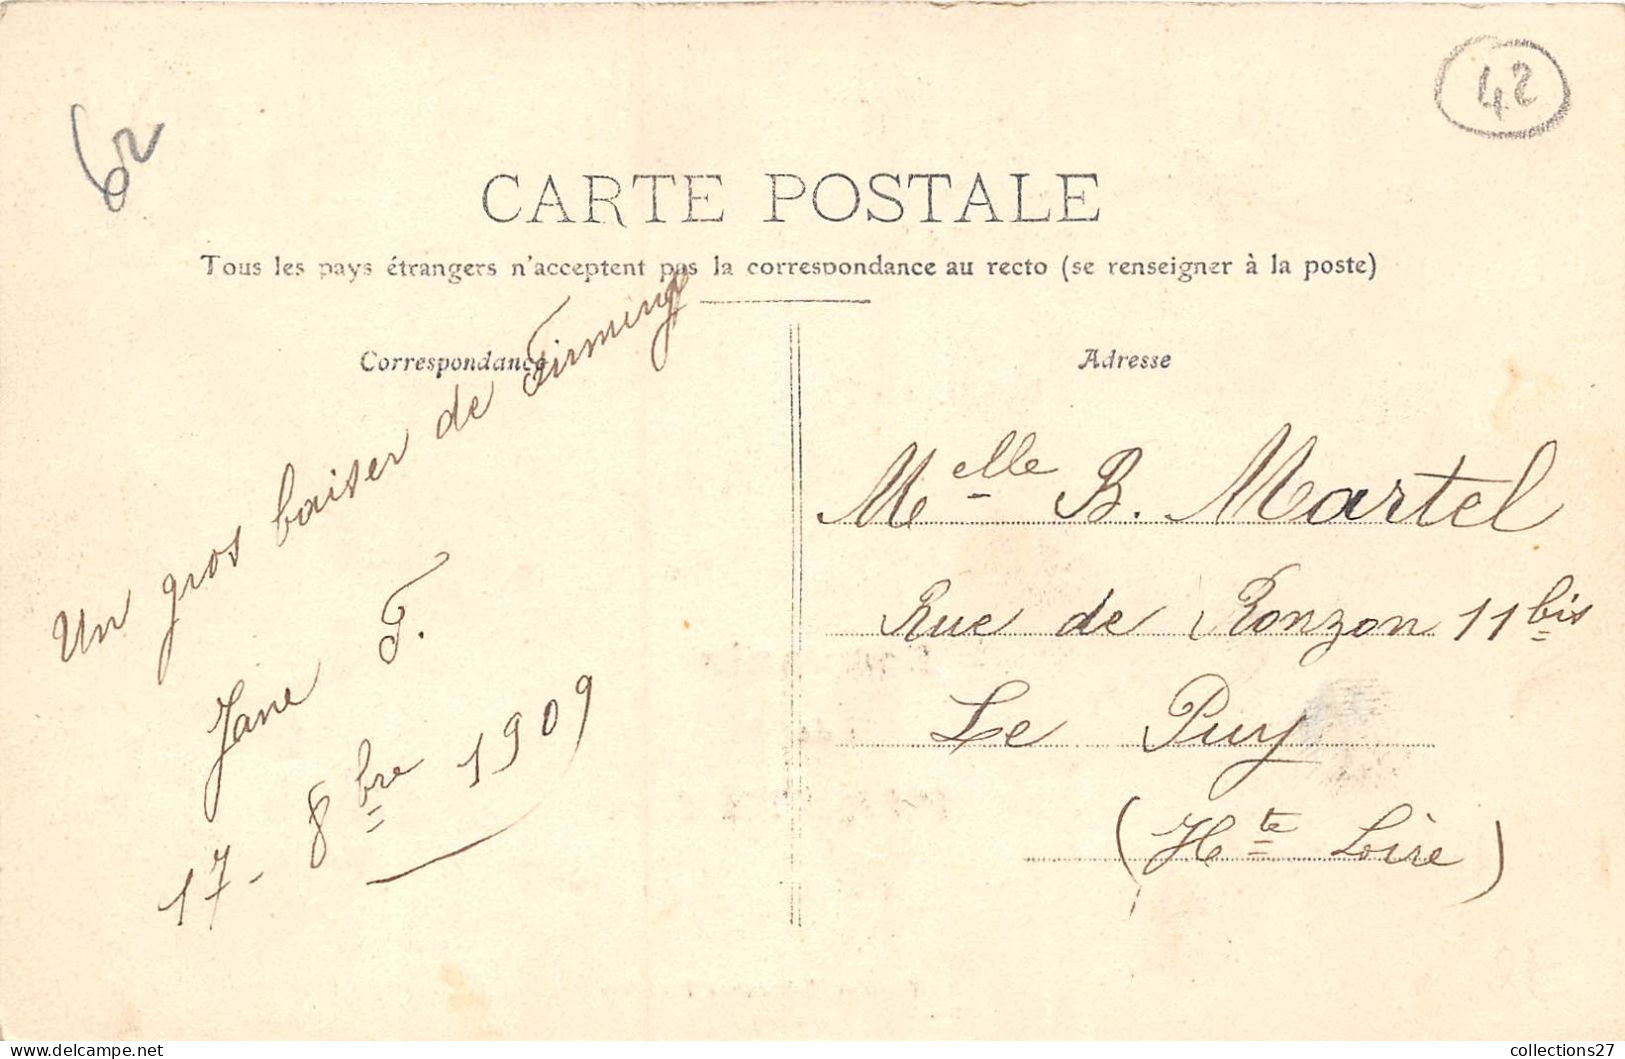 42
62
CARTE POSTALE
Tous les pays étrangers n'acceptent pas la correspondance au recto (se renseigner à la poste)
Correspondance
Un gros baiser de Firminy
Jane F.
17 - 8bre 1909
Adresse
Melle B. Martel
Rue de Ronzon 11bis
Le Puy
(Hte Loire)
collections27